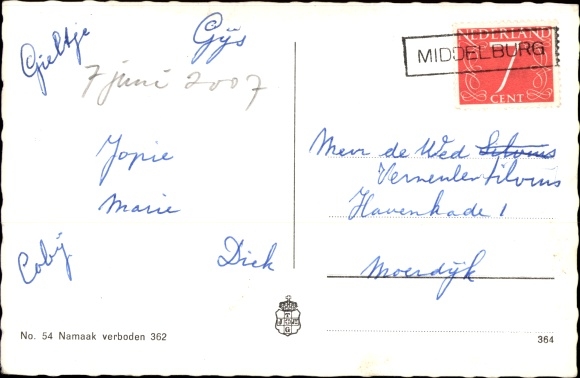 Gieltje
Gijs
7 juni 2007
Jopie
Marie
Cobij
Dick
No. 54 Namaak verboden 362
NEDERLAND
1
CENT
MIDDELBURG
Mevr de Wed Silvius
Vermeulen Silvius
Havenkade 1
Moerdijk
364